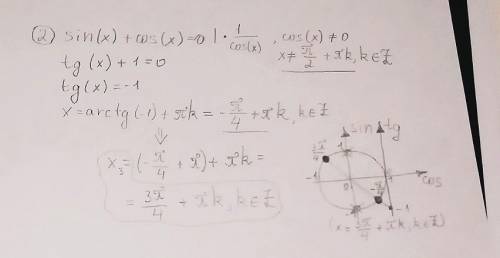 ② sin(x) + cos(x) = 0 | · 1/cos(x) , cos(x) ≠ 0
tg(x) + 1 = 0
x ≠ π/2 + πk, k ∈ Z
tg(x) = -1
x = arctg(-1) + πk = -π/4 + πk, k ∈ Z
⇓
x₃ = (-π/4 + π) + πk =
= 3π/4 + πk, k ∈ Z
sin tg
1
3π/4
-1 0 cos
-π/4
-1
(x = 3π/4 + πk, k ∈ Z)